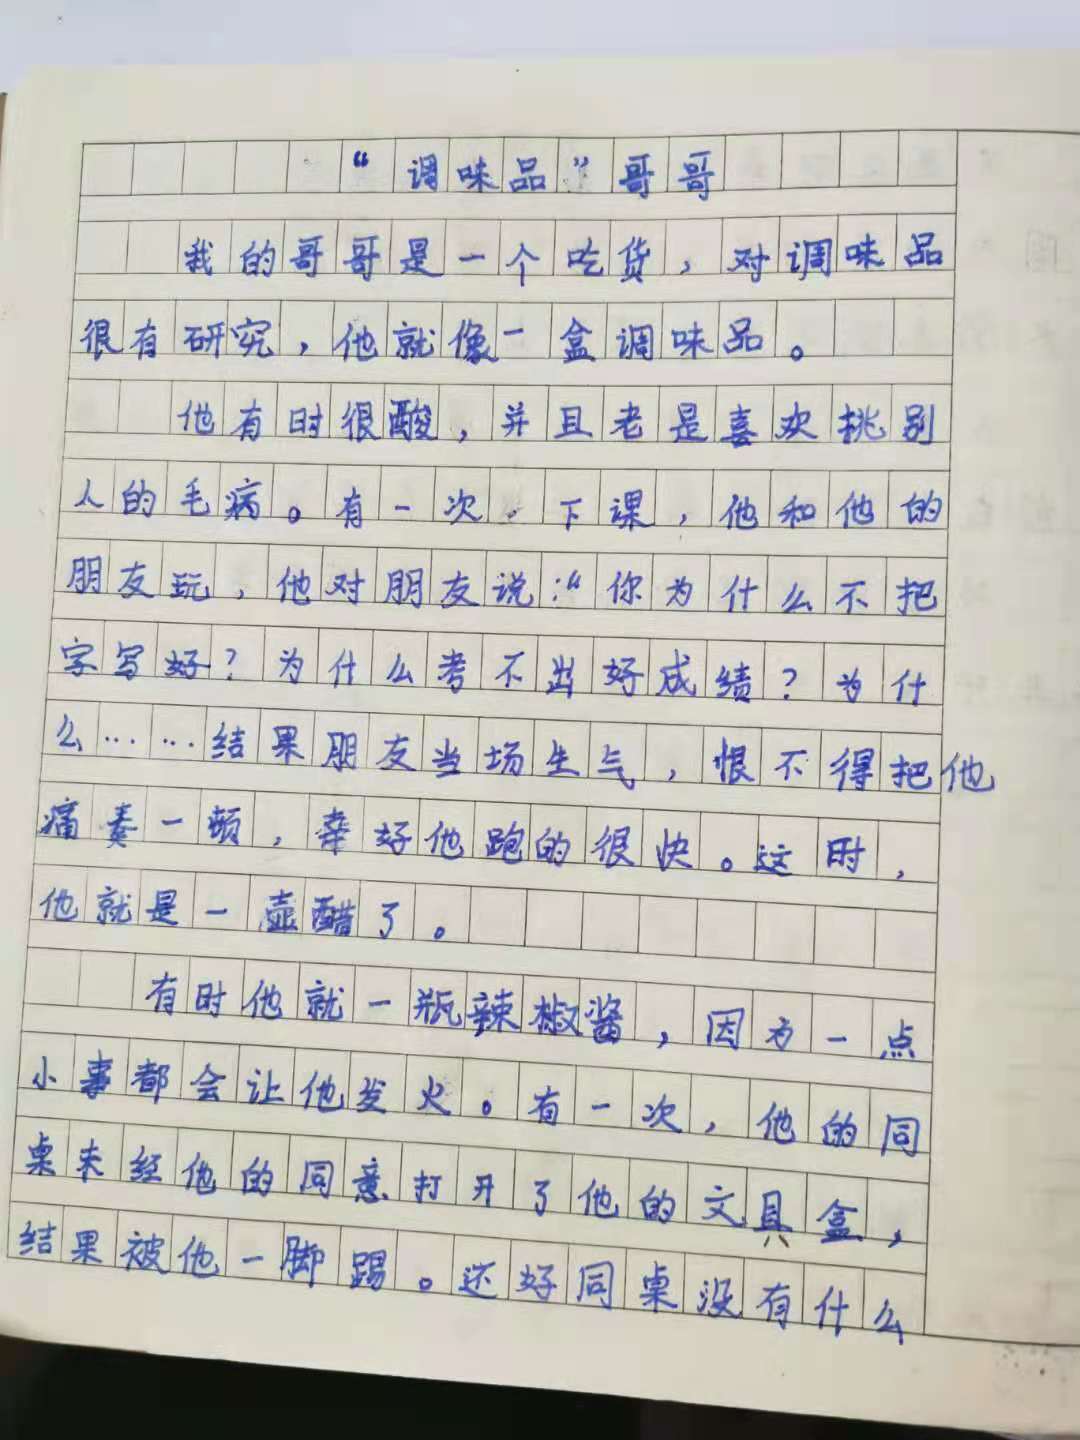 “调味品”哥哥
我的哥哥是一个吃货，对调味品
很有研究，他就像一盒调味品。
他有时很酸，并且老是喜欢挑别
人的毛病。有一次，下课，他和他的
朋友玩，他对朋友说：“你为什么不把
字写好？为什么考不出好成绩？为什
么……结果朋友当场生气，恨不得把他
痛奏一顿，幸好他跑的很快。这时，
他就是一壶醋了。
有时他就一瓶辣椒酱，因为一点
小事都会让他发火。有一次，他的同
桌未经他的同意打开了他的文具盒，
结果被他一脚踢。还好同桌没有什么